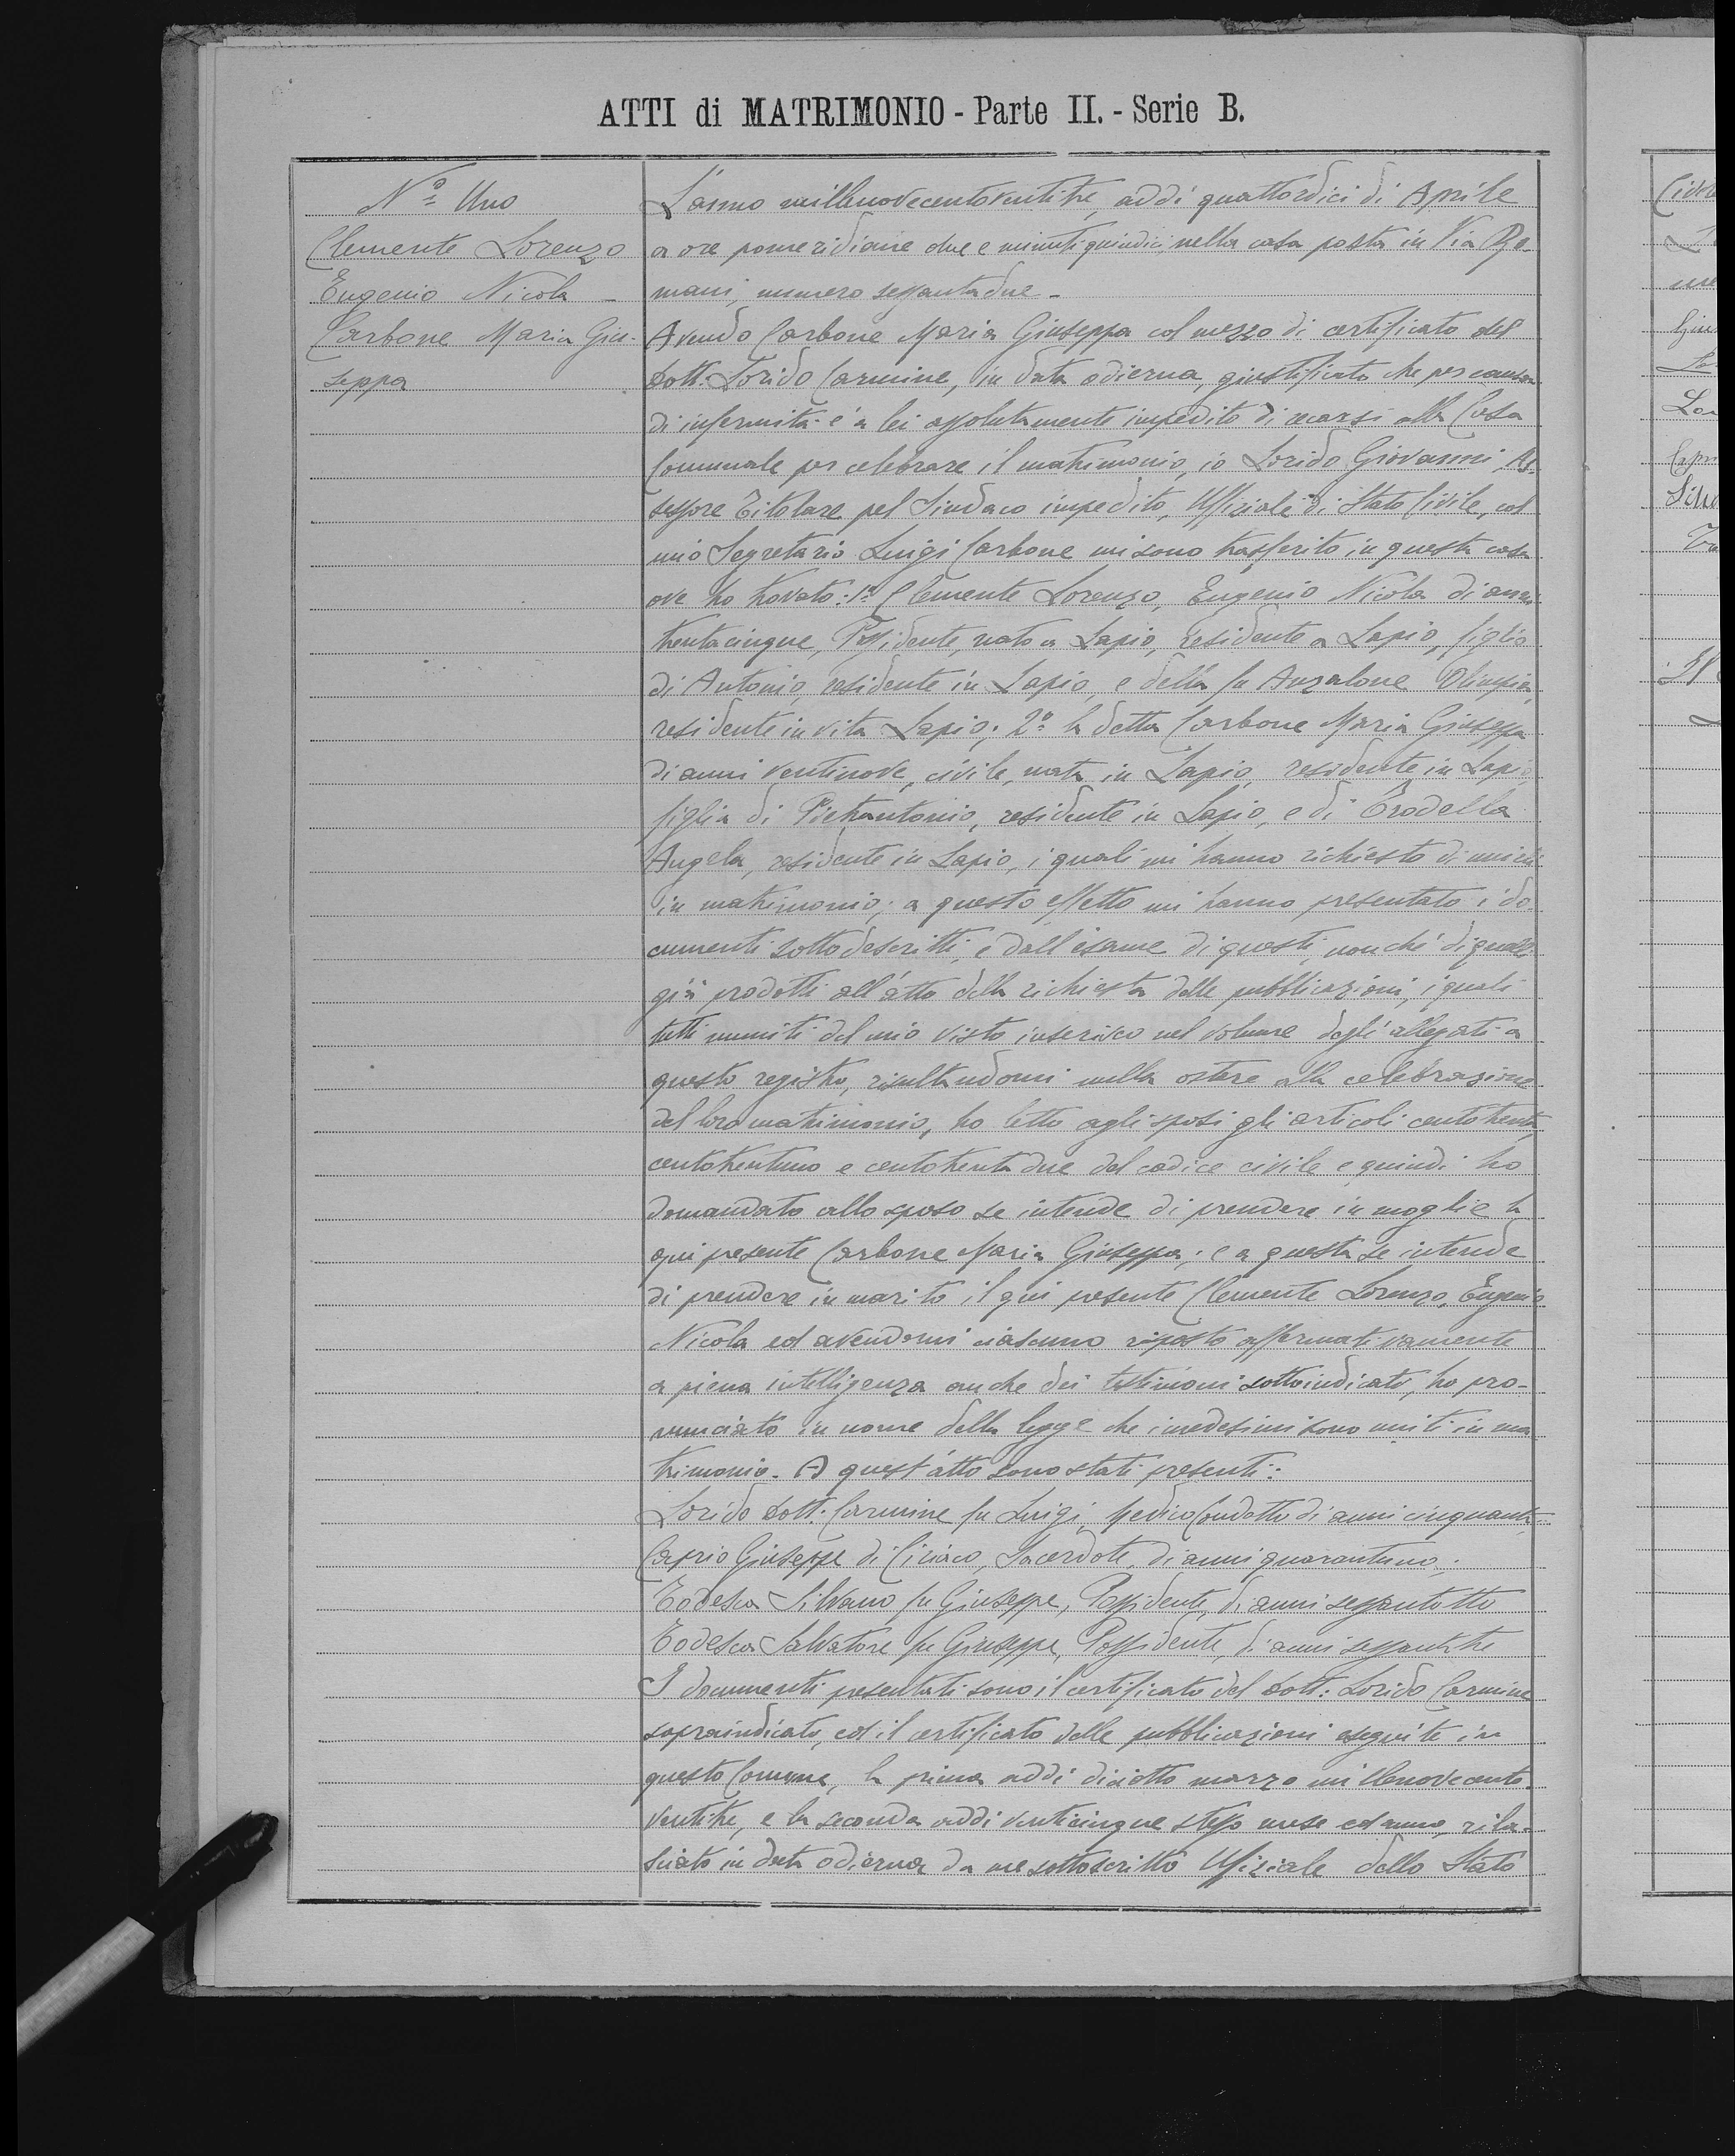 ATTI di MATRIMONIO - Parte II. - Serie B.
No Uno
Clemente Lorenzo
Eugenio Nicola -
Carbone Maria Giu-
seppa
L'anno millenovecentoventitre, addì quattordici di Aprile
a ore pomeridiane due e minuti quindici, nella casa posta in Via Ro-
mani, numero sessantadue -
Avendo Carbone Maria Giuseppa col mezzo di certificato del
Dott. Lorido Carmine, in data odierna, giustificato che per causa
di infermità è a lei assolutamente impedito di recarsi alla Casa
Comunale per celebrare il matrimonio, io Lorido Giovanni, As-
sessore Titolare pel Sindaco impedito, Uffiziale di Stato Civile, col
mio Segretario Luigi Carbone mi sono trasferito in questa casa
ove ho trovato: 1° Clemente Lorenzo, Eugenio Nicola di anni
trentacinque, Possidente, nato a Lapio, residente a Lapio, figlio
di Antonio, residente in Lapio, e della fu Anzalone Olimpia,
residente in vita Lapio; 2° la detta Carbone Maria Giuseppa
di anni ventinove, civile, nata in Lapio, residente in Lapio,
figlia di Pietrantonio, residente in Lapio, e di Trodella
Angela, residente in Lapio, i quali mi hanno richiesto di unirli
in matrimonio; a questo effetto mi hanno presentato i do-
cumenti sotto descritti, e dall'esame di questi, non ché di quelli
già prodotti all'atto della richiesta delle pubblicazioni, i quali
tutti muniti del mio visto inserisco nel volume degli allegati a
questo registro, risultandomi nulla ostare alla celebrazione
del loro matrimonio, ho letto agli sposi gli articoli centotrenta,
centotrentuno e centotrentadue del codice civile e quindi ho
domandato allo sposo se intende di prendere in moglie la
qui presente Carbone Maria Giuseppa; e a questa se intende
di prendere in marito il qui presente Clemente Lorenzo, Eugenio
Nicola ed avendomi ciascuno risposto affermativamente
a piena intelligenza anche dei testimoni sottoindicati, ho pro-
nunciato in nome della legge che i medesimi sono uniti in ma-
trimonio. A quest'atto sono stati presenti:
Lorido Dott. Carmine fu Luigi, Medico Condotto di anni cinquanta
Caprio Giuseppe di Ciriaco, Sacerdote, di anni quarantuno.
Todesca Silvano fu Giuseppe, Possidente, di anni sessantotto
Todesca Salvatore fu Giuseppe, Possidente, di anni sessantatre
I documenti presentati sono il certificato del Dott: Lorido Carmine
sopraindicato, ed il certificato delle pubblicazioni eseguite in
questo Comune, la prima addì diciotto marzo millenovecento-
ventitre, e la seconda addì venticinque stesso mese ed anno, rila-
sciato in data odierna da me sottoscritto Uffiziale dello Stato